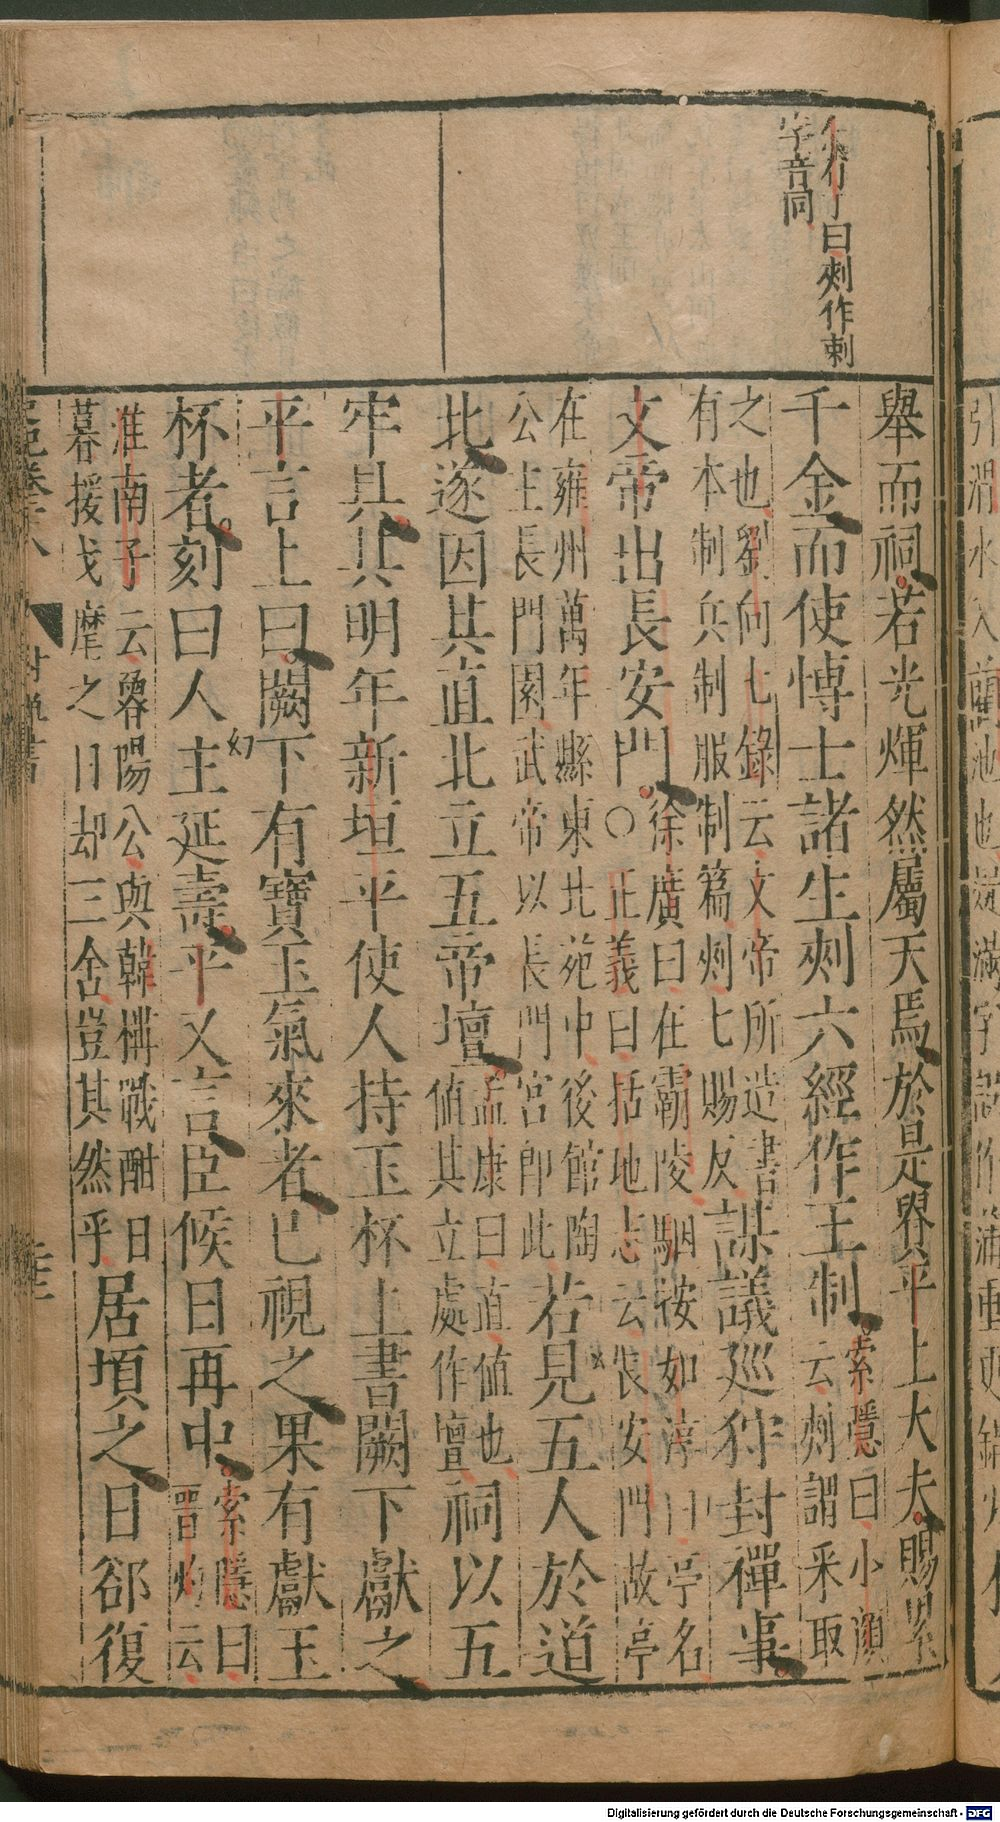 曰刾作刺
字音同
舉而祠若光煇然屬天焉於是貴平上大夫賜累
千金而使博士諸生刾六經作王制索隱曰小顔
云刾謂采取
之也劉向七錄云文帝所造書
有本制兵制服制篇刾七賜反謀議巡狩封禪事
文帝出長安門徐廣曰在霸陵駰按如淳曰亭名
○正義曰括地志云長安門故亭
在雍州萬年縣東北苑中後館陶
公主長門園武帝以長門宮即此若見五人於道
北遂因其直北立五帝壇孟康曰直値也
値其立處作壇祠以五
牢具其明年新垣平使人持玉杯上書闕下獻之
平言上曰闕下有寶玉氣來者已視之果有獻玉
杯者刻曰人主延壽平又言臣候日再中索隱曰
晋灼云
淮南子云魯陽公與韓構戰酣日
暮援戈麾之日却三舍豈其然乎居頃之日郤復
Digitalisierung gefördert durch die Deutsche Forschungsgemeinschaft - DFG